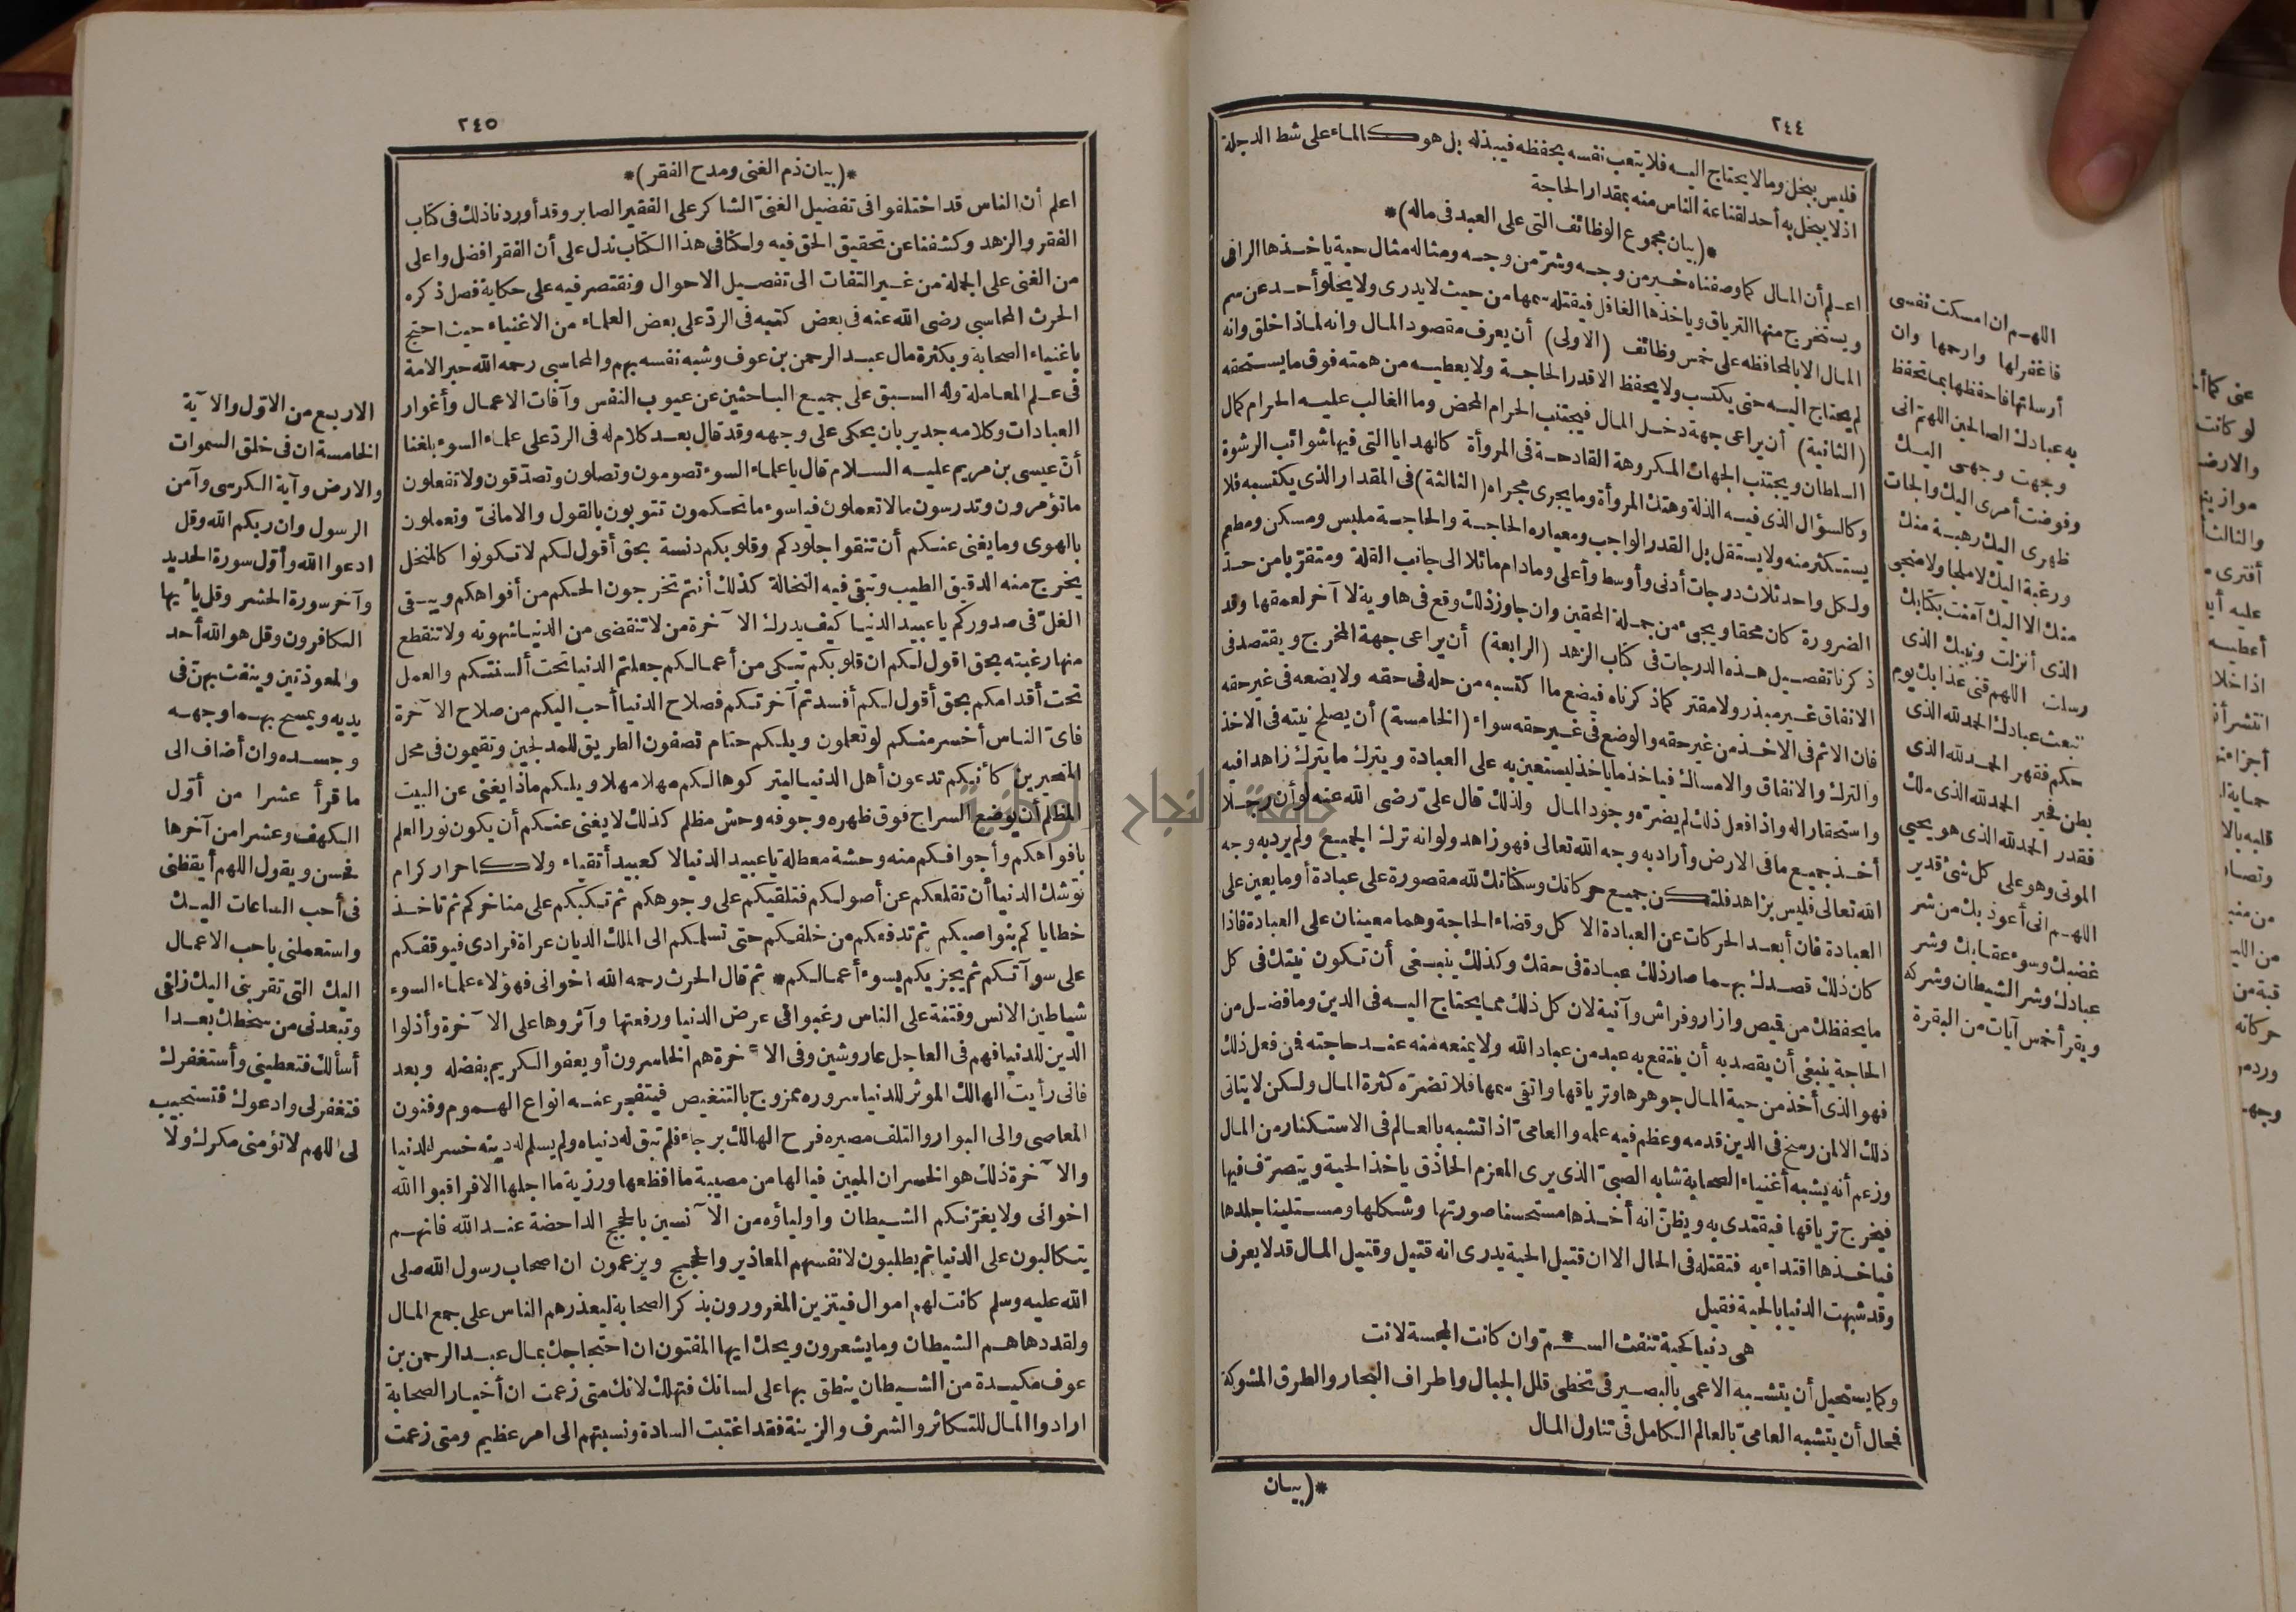 ٢٤٤
فليس ببخل ومالا يحتاج اليه فلا يتعب نفسه بحفظه فيبذله بل هو كالماء على شط الدجلة
اذ لا يبخل به أحد لقناعة الناس منه بمقدار الحاجة
*(بيان مجموع الوظائف التى على العبد فى ماله)*
اعلم أن المال كما وصفناه خير من وجه وشر من وجه ومثاله مثال حية ياخذها الراقى
ويستخرج منها الترياق وياخذها الغافل فيقتله سمها من حيث لا يدرى ولا يخلو أحد عن سم
المال الا بالمحافظه على خمس وظائف (الاولى) أن يعرف مقصود المال وانه لماذا خلق وانه
لم يحتاج اليه حتى يكتسب ولا يحفظ الا قدر الحاجة ولا يعطيه من همته فوق ما يستحقه
(الثانية) أن يراعى جهة دخل المال فيجتنب الحرام المحض وما الغالب عليه الحرام كمال
السلطان ويجتنب الجهات المكروهة القادحة فى المروأة كالهدايا التى فيها شوائب الرشوة
وكالسؤال الذى فيه الذلة وهتك المروأة وما يجرى مجراه (الثالثة) فى المقدار الذى يكتسبه فلا
يستكثر منه ولا يستقل بل القدر الواجب ومعياره الحاجة والحاجة ملبس ومسكن ومطعم
ولكل واحد ثلاث درجات أدنى وأوسط وأعلى ومادام مائلا الى جانب القلة ومتقربا من حد
الضرورة كان محقا ويجىء من جملة المحقين وان جاوز ذلك وقع فى هاوية لا آخر لعمقها وقد
ذكرنا تفصيل هذه الدرجات فى كتاب الزهد (الرابعة) أن يراعى جهة المخرج ويقتصد فى
الانفاق غير مبذر ولا مقتر كما ذكرناه فيضع ما اكتسبه من حله فى حقه ولا يضعه فى غير حقه
فان الاثم فى الاخذ من غير حقه والوضع فى غير حقه سواء (الخامسة) أن يصلح نيته فى الاخذ
والترك والانفاق والامساك فياخذ ما ياخذ ليستعين به على العبادة ويترك ما يترك زاهدا فيه
واستحقارا له واذا فعل ذلك لم يضره وجود المال ولذلك قال علىّ رضى الله عنه لو أن رجلا
أخذ جميع ما فى الارض وأراد به وجه الله تعالى فهو زاهد ولو انه ترك الجميع ولم يرد به وجه
الله تعالى فليس بزاهد فلتكن جميع حركاتك وسكناتك لله مقصورة على عبادة أو ما يعين على
العبادة فان أبعد الحركات عن العبادة الا كل وقضاء الحاجة وهما معينان على العبادة فاذا
كان ذلك قصدك بهما صار ذلك عبادة فى حقك وكذلك ينبغى أن تكون نيتك فى كل
ما يحفظك من قميص وازار وفراش وآنية لان كل ذلك مما يحتاج اليه فى الدين وما فضل من
الحاجة ينبغى أن يقصد به أن ينتفع به عبد من عباد الله ولا يمنعه منه عند حاجته فمن فعل ذلك
فهو الذى أخذ من حية المال جوهرها وترياقها واتقى سمها فلا تضره كثرة المال ولكن لا يتاتى
ذلك الا لمن رسخ فى الدين قدمه وعظم فيه علمه والعامىّ اذا تشبه بالعالم فى الاستكثار من المال
وزعم أنه يشبه أغنياء الصحابة شابه الصبىّ الذى يرى المعزم الحاذق ياخذ الحية ويتصرّف فيها
فيخرج ترياقها فيقتدى به ويظن انه أخذها مستحسنا صورتها وشكلها ومستلينا جلدها
فياخذها اقتداء به فتقتله فى الحال الا ان قتيل الحية يدرى انه قتيل وقتيل المال قد لا يعرف
وقد شبهت الدنيا بالحية فقيل
هى دنيا كحية تنفث الســم * وان كانت المجسة لانت
وكما يستحيل أن يتشبه الاعمى بالبصير فى تخطى قلل الجبال واطراف البحار والطرق المشوكة
فمحال أن يتشبه العامىّ بالعالم الكامل فى تناول المال
*(بيان
اللهم ان امسكت نفسى
فاغفر لها وارحمها وان
أرسلتها فاحفظها بما تحفظ
به عبادك الصالحين اللهم انى
وجهت وجهى اليك
وفوضت أمرى اليك والجات
ظهرى اليك رهبة منك
ورغبة اليك لا ملجا ولا منجى
منك الا اليك آمنت بكتابك
الذى أنزلت ونبيك الذى
رسلت اللهم قنى عذابك يوم
تبعث عبادك الحمد لله الذى
حكم فقهر الحمد لله الذى
بطن فخبر الحمد لله الذى ملك
فقدر الحمد لله الذى هو يحيى
الموتى وهو على كل شئ قدير
اللهم انى أعوذ بك من شر
غضبك وسوء عقابك وشر
عبادك وشر الشيطان وشركه
ويقرأ خمس آيات من البقرة
٢٤٥
*(بيان ذم الغنى ومدح الفقر)*
اعلم أن الناس قد اختلفوا فى تفضيل الغنىّ الشاكر على الفقير الصابر وقد أوردنا ذلك فى كتاب
الفقر والزهد وكشفنا عن تحقيق الحق فيه ولكنا فى هذا الكتاب ندل على أن الفقر افضل واعلى
من الغنى على الجملة من غير التفات الى تفصيل الاحوال ونقتصر فيه على حكاية فصل ذكره
الحرث المحاسبى رضى الله عنه فى بعض كتبه فى الرد على بعض العلماء من الاغنياء حيث احتج
باغنياء الصحابة وبكثرة مال عبد الرحمن بن عوف وشبه نفسه بهم والمحاسبى رحمه الله حبر الامة
فى علم المعاملة وله السبق على جميع الباحثين عن عيوب النفس وآفات الاعمال وأغوار
العبادات وكلامه جدير بان يحكى على وجهه وقد قال بعد كلام له فى الرد على علماء السوء بلغنا
أن عيسى بن مريم عليه السلام قال ياعلماء السوء تصومون وتصلون وتصدّقون ولا تفعلون
ما تؤمرون وتدرسون مالا تعملون فياسوء ما تحكمون تتوبون بالقول والامانىّ وتعملون
بالهوى وما يغنى عنكم أن تنقوا جلودكم وقلوبكم دنسة بحق أقول لكم لا تكونوا كالمنخل
يخرج منه الدقيق الطيب وتبقى فيه النخالة كذلك أنتم تخرجون الحكم من أفواهكم ويبقى
الغلّ فى صدوركم ياعبيد الدنيا كيف يدرك الآخرة من لا تنقضى من الدنيا شهوته ولا تنقطع
منها رغبته بحق اقول لكم ان قلوبكم تبكى من أعمالكم جعلتم الدنيا تحت ألسنتكم والعمل
تحت أقدامكم بحق أقول لكم أفسدتم آخرتكم فصلاح الدنيا أحب اليكم من صلاح الآخرة
فاىّ الناس أخسر منكم لو تعلمون ويلكم حتام تصفون الطريق للمدلجين وتقيمون فى محل
المتحيرين كأنكم تدعون أهل الدنيا ليتركوها لكم مهلا مهلا ويلكم ماذا يغنى عن البيت
المظلم أن يوضع السراج فوق ظهره وجوفه وحش مظلم كذلك لا يغنى عنكم أن يكون نور العلم
بافواهكم وأجوافكم منه وحشة معطلة ياعبيد الدنيا لا كعبيد أتقياء ولا كاحرار كرام
توشك الدنيا أن تقلعكم عن أصولكم فتلقيكم على وجوهكم ثم تكبكم على مناخركم ثم تاخذ
خطاياكم بنواصيكم ثم تدفعكم من خلفكم حتى تسلمكم الى الملك الديان عراة فرادى فيوقفكم
على سوآتكم ثم يجزيكم بسوء أعمالكم* ثم قال الحرث رحمه الله اخوانى فهؤلاء علماء السوء
شياطين الانس وفتنة على الناس رغبوا فى عرض الدنيا ورفعتها وآثروها على الآخرة وأذلوا
الدين للدنيا فهم فى العاجل عار وشين وفى الآخرة هم الخاسرون أو يعفو الكريم بفضله وبعد
فانى رأيت الهالك الموثر للدنيا سروره ممزوج بالتنغيص فيتفجر عنه انواع الهموم وفنون
المعاصى والى البوار والتلف مصيره فرح الهالك برجاء فلم تبق له دنياه ولم يسلم له دينه خسر الدنيا
والآخرة ذلك هو الخسران المبين فيا لها من مصيبة ما افظعها ورزية ما اجلها الا فراقبوا الله
اخوانى ولا يغرّنكم الشيطان واولياؤه من الآنسين بالحجج الداحضة عند الله فانهم
يتكالبون على الدنيا ثم يطلبون لانفسهم المعاذير والحجج ويزعمون ان اصحاب رسول الله صلى
الله عليه وسلم كانت لهم اموال فيتزين المغرورون بذكر الصحابة ليعذرهم الناس على جمع المال
ولقد دهاهم الشيطان وما يشعرون ويحك ايها المفتون ان احتجاجك بمال عبد الرحمن بن
عوف مكيدة من الشيطان ينطق بها على لسانك فتهلك لانك متى زعمت ان أخيار الصحابة
ارادوا المال للتكاثر والشرف والزينة فقد اغتبت السادة ونسبتهم الى امر عظيم ومتى زعمت
الاربع من الاوّل والآية
الخامسة ان فى خلق السموات
والارض وآية الكرسى وآمن
الرسول وان ربكم الله وقل
ادعوا الله وأوّل سورة الحديد
وآخر سورة الحشر وقل يا أيها
الكافرون وقل هو الله أحد
والمعوذتين وينفث بهن فى
يديه ويمسح بهما وجهه
وجسده وان أضاف الى
ما قرأ عشرا من أوّل
الكهف وعشرا من آخرها
فحسن ويقول اللهم أيقظنى
فى أحب الساعات اليك
واستعملنى باحب الاعمال
اليك التى تقربنى اليك زلفى
وتبعدنى من سخطك بعدا
أسألك فتعطينى وأستغفرك
فتغفر لى وادعوك فتستجيب
لى اللهم لا تؤمنى مكرك ولا
جامعة النجاح الوطنية